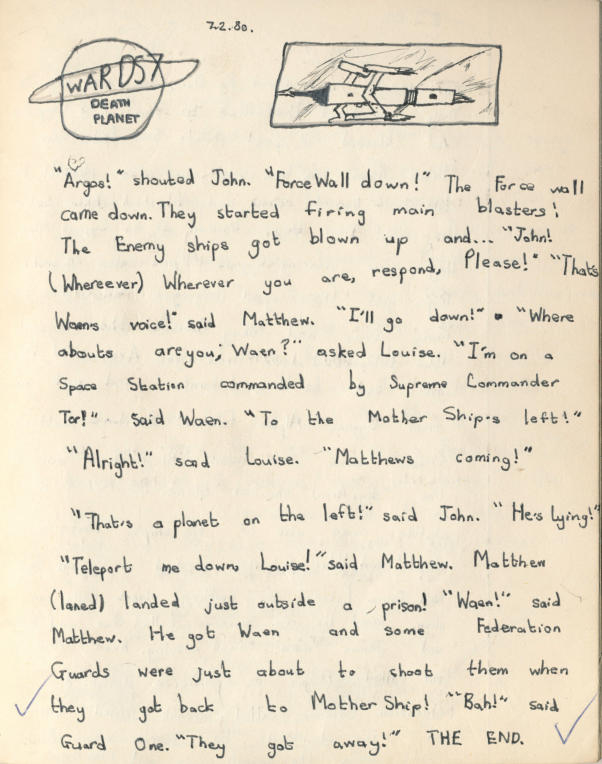 7.2.80.
WARDS 7
DEATH
PLANET
"Argos!" shouted John. "Force Wall down!" The Force wall
came down. They started firing main blasters!
The Enemy ships got blown up and... "John!
(Whereever) Wherever you are, respond, Please!" "That's
Waen's voice!" said Matthew. "I'll go down!" "Where
abouts are you, Waen?" asked Louise. "I'm on a
Space Station commanded by Supreme Commander
Tor!" said Waen. "To the Mother Ship's left!"
"Alright!" said Louise. "Matthews coming!"
"That's a planet on the left!" said John. "He's lying!"
"Teleport me down, Louise!" said Matthew. Matthew
(laned) landed just outside a prison! "Waen!" said
Matthew. He got Waen and some Federation
Guards were just about to shoot them when
they got back to Mother Ship! "Bah!" said
Guard One. "They got away!" THE END.